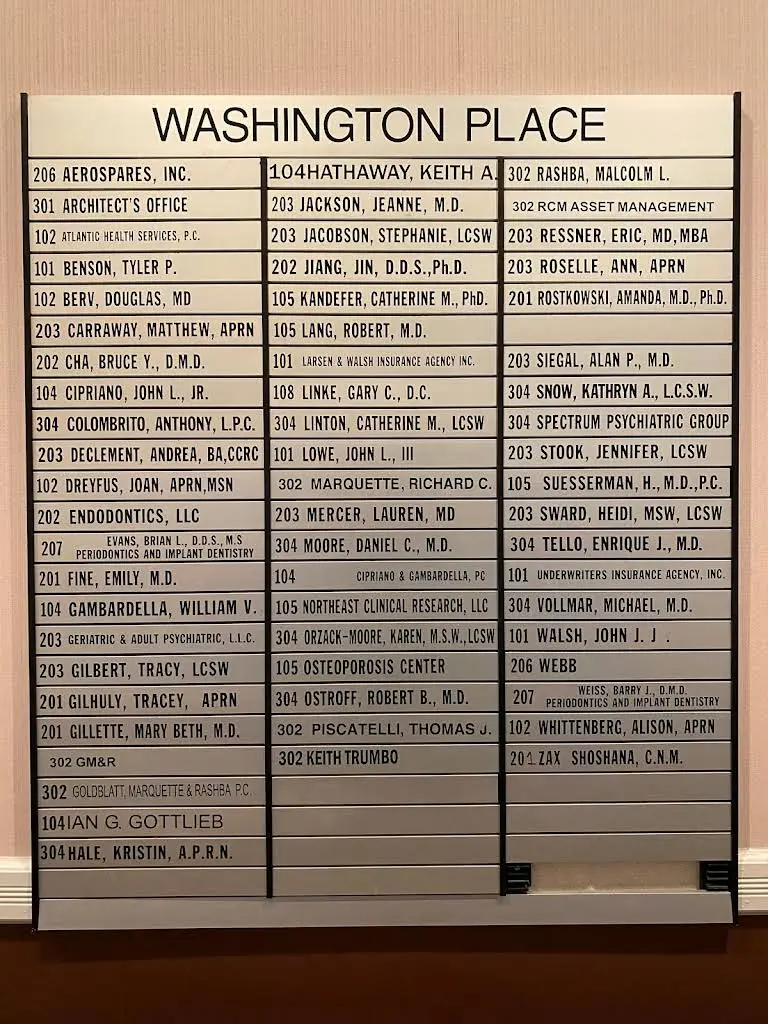 WASHINGTON PLACE
206 AEROSPARES, INC.
301 ARCHITECT'S OFFICE
102 ATLANTIC HEALTH SERVICES, P.C.
101 BENSON, TYLER P.
102 BERV, DOUGLAS, MD
203 CARRAWAY, MATTHEW, APRN
202 CHA, BRUCE Y., D.M.D.
104 CIPRIANO, JOHN L., JR.
304 COLOMBRITO, ANTHONY, L.P.C.
203 DECLEMENT, ANDREA, BA,CCRC
102 DREYFUS, JOAN, APRN,MSN
202 ENDODONTICS, LLC
207 EVANS, BRIAN L., D.D.S., M.S
PERIODONTICS AND IMPLANT DENTISTRY
201 FINE, EMILY, M.D.
104 GAMBARDELLA, WILLIAM V.
203 GERIATRIC & ADULT PSYCHIATRIC, L.L.C.
203 GILBERT, TRACY, LCSW
201 GILHULY, TRACEY, APRN
201 GILLETTE, MARY BETH, M.D.
302 GM&R
302 GOLDBLATT, MARQUETTE & RASHBA P.C.
104 IAN G. GOTTLIEB
304 HALE, KRISTIN, A.P.R.N.
104 HATHAWAY, KEITH A.
203 JACKSON, JEANNE, M.D.
203 JACOBSON, STEPHANIE, LCSW
202 JIANG, JIN, D.D.S.,Ph.D.
105 KANDEFER, CATHERINE M., PhD.
105 LANG, ROBERT, M.D.
101 LARSEN & WALSH INSURANCE AGENCY INC.
108 LINKE, GARY C., D.C.
304 LINTON, CATHERINE M., LCSW
101 LOWE, JOHN L., III
302 MARQUETTE, RICHARD C.
203 MERCER, LAUREN, MD
304 MOORE, DANIEL C., M.D.
104 CIPRIANO & GAMBARDELLA, PC
105 NORTHEAST CLINICAL RESEARCH, LLC
304 ORZACK-MOORE, KAREN, M.S.W.,LCSW
105 OSTEOPOROSIS CENTER
304 OSTROFF, ROBERT B., M.D.
302 PISCATELLI, THOMAS J.
302 KEITH TRUMBO
302 RASHBA, MALCOLM L.
302 RCM ASSET MANAGEMENT
203 RESSNER, ERIC, MD,MBA
203 ROSELLE, ANN, APRN
201 ROSTKOWSKI, AMANDA, M.D., Ph.D.
203 SIEGAL, ALAN P., M.D.
304 SNOW, KATHRYN A., L.C.S.W.
304 SPECTRUM PSYCHIATRIC GROUP
203 STOOK, JENNIFER, LCSW
105 SUESSERMAN, H., M.D.,P.C.
203 SWARD, HEIDI, MSW, LCSW
304 TELLO, ENRIQUE J., M.D.
101 UNDERWRITERS INSURANCE AGENCY, INC.
304 VOLLMAR, MICHAEL, M.D.
101 WALSH, JOHN J. J .
206 WEBB
207 WEISS, BARRY J., D.M.D.
PERIODONTICS AND IMPLANT DENTISTRY
102 WHITTENBERG, ALISON, APRN
201 ZAX SHOSHANA, C.N.M.